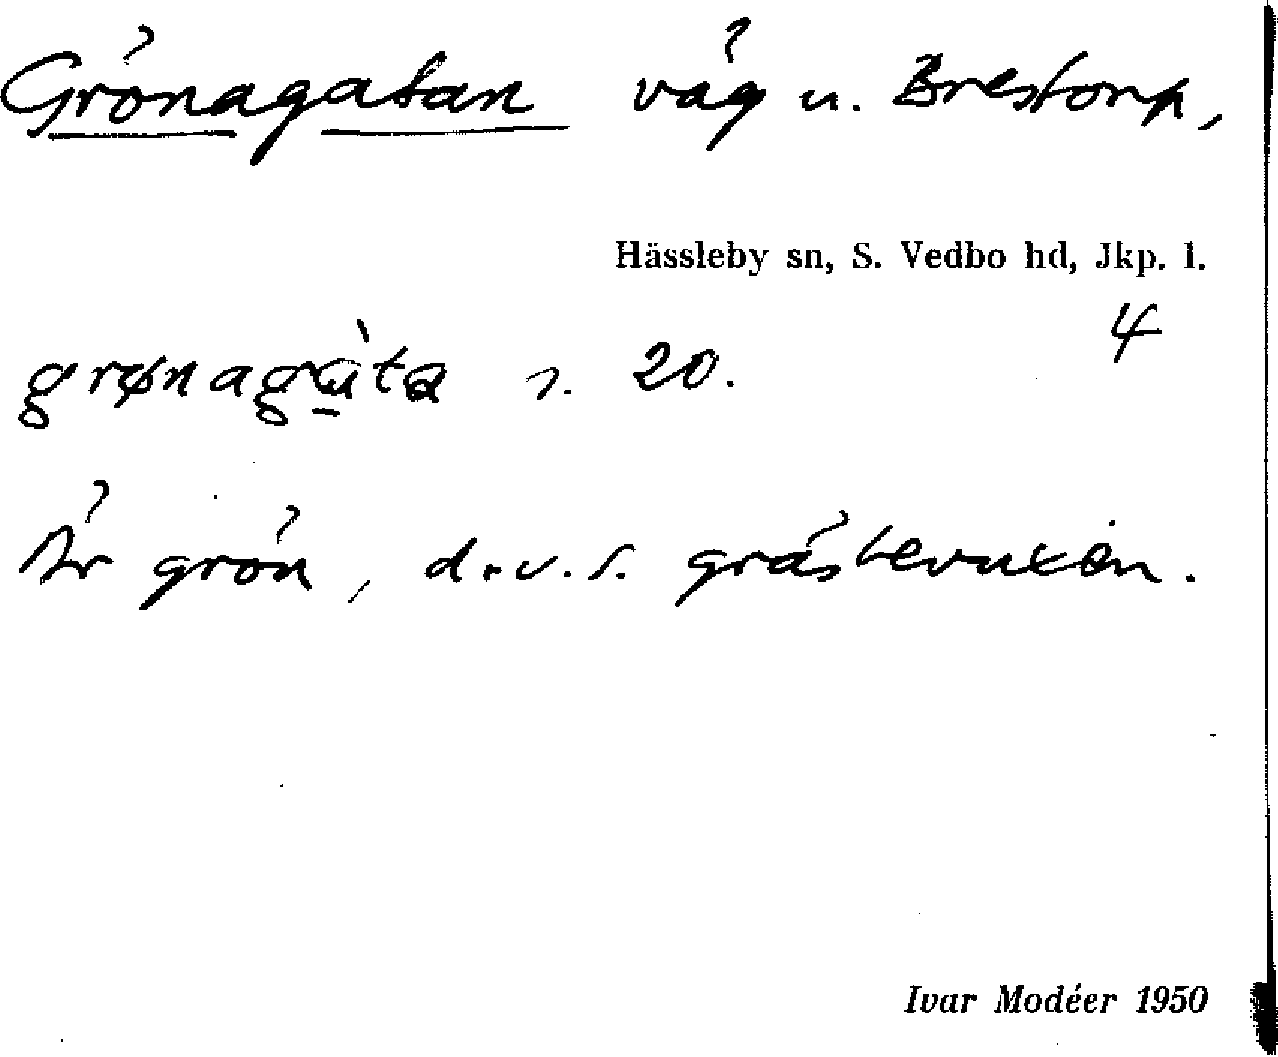 Grönagatan väg u. Brestorp,
Hässleby sn, S. Vedbo hd, Jkp. l.
4
20.
Är grön, d.v.s. gräsbevuxen.
Ivar Modéer 1950